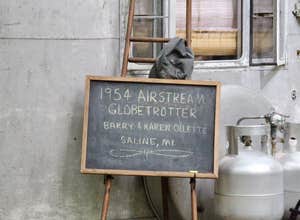 1954 AIRSTREAM
GLOBETROTTER
BARRY & KAREN OILETTE
SALINE, MI